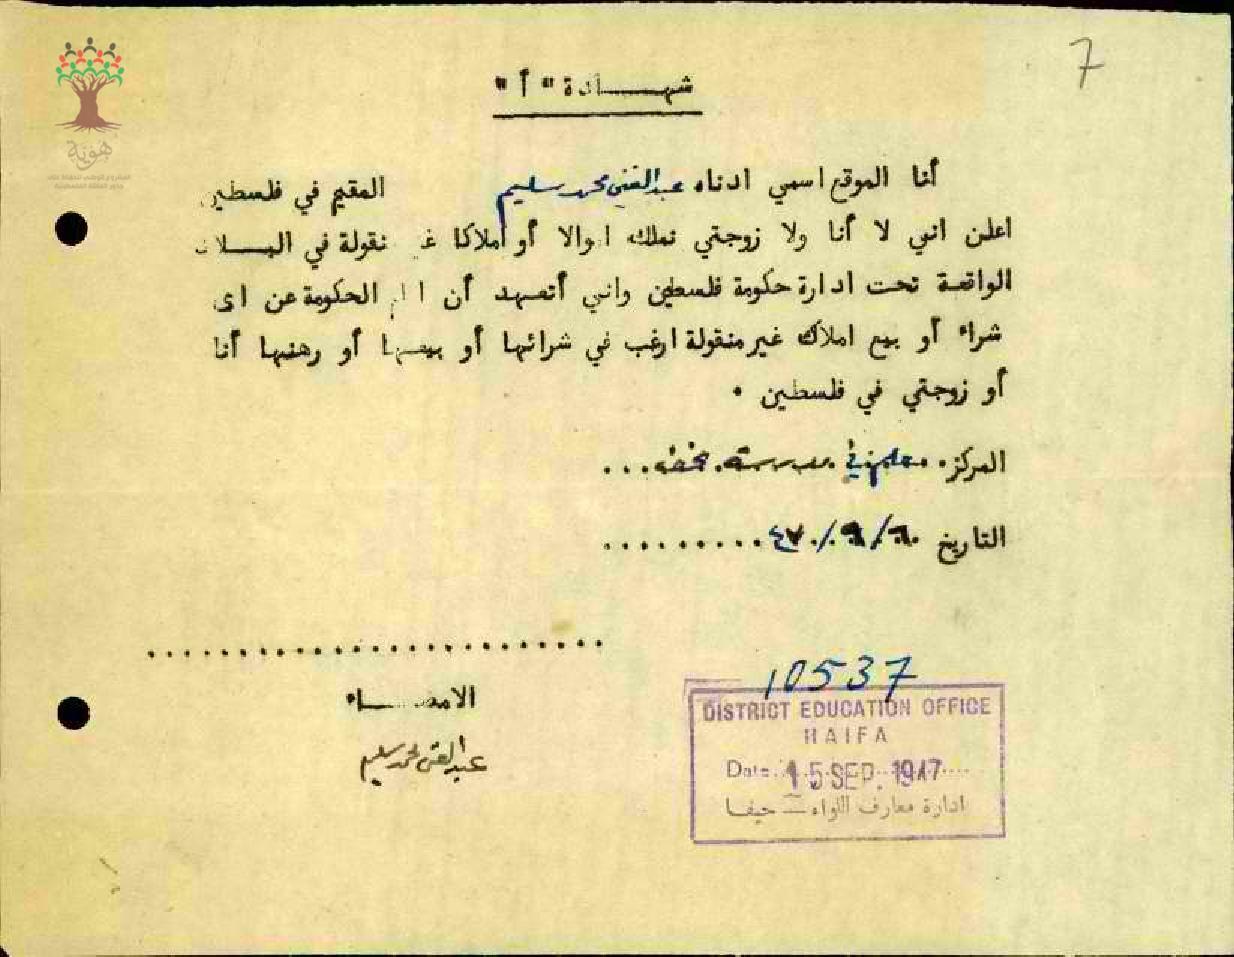 7
شهـــادة "أ"
هوية
أنا الموقع اسمي ادناه عبد الغني محمد سليم المقيم في فلسطين
اعلن اني لا أنا ولا زوجتي نملك اموالا أو أملاكا نقولة في البـــلاد
الواقعة تحت ادارة حكومة فلسطين واني أتعهد أن الحكومة عن اى
شراء أو بيع املاك غير منقولة ارغب في شرائها أو بيعها أو رهنها أنا
أو زوجتي في فلسطين .
المركز. معلم في مدرسة ...
التاريخ ٦/٩/٤٧ .........
.........................
الامضـــاء
عبد الغني محمد سليم
10537
DISTRICT EDUCATION OFFICE
HAIFA
Date. 15 SEP. 1947
ادارة معارف اللواء – حيفا